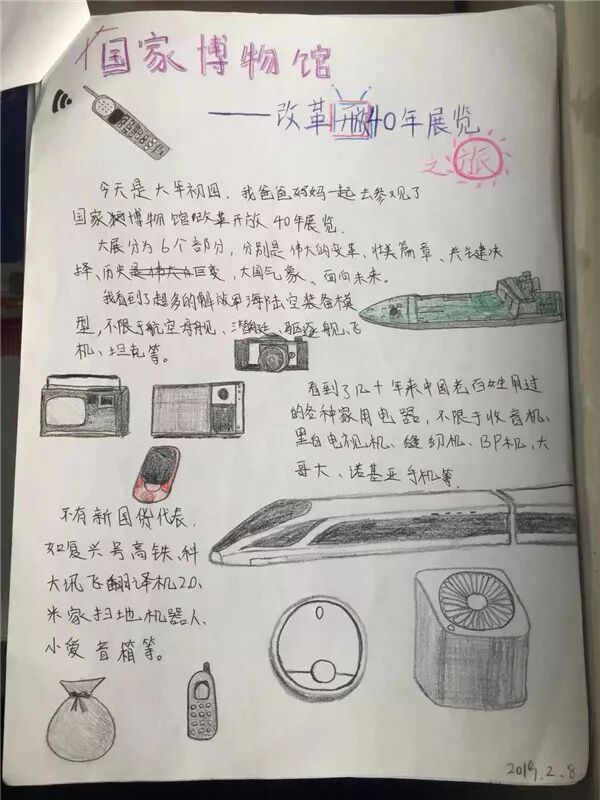 国家博物馆
——改革开放40年展览
之旅
今天是大年初四，我爸爸妈妈一起去参观了
国家博物馆改革开放40年展览.
大展分为6个部分，分别是伟大的变革、壮美篇章、关键抉
择、历史巨变、大国气象、面向未来.
我看到了超多的解放军海陆空装备模
型，不限于航空母舰、潜艇、驱逐舰、飞
机、坦克等。
看到了几十年来中国老百姓用过
的各种家用电器，不限于收音机、
黑白电视机、缝纫机、BP机，大
哥大、诺基亚手机等
不有新国货代表，
如复兴号高铁、科
大讯飞翻译机2.0、
米家扫地机器人、
小爱音箱等。
2019.2.8